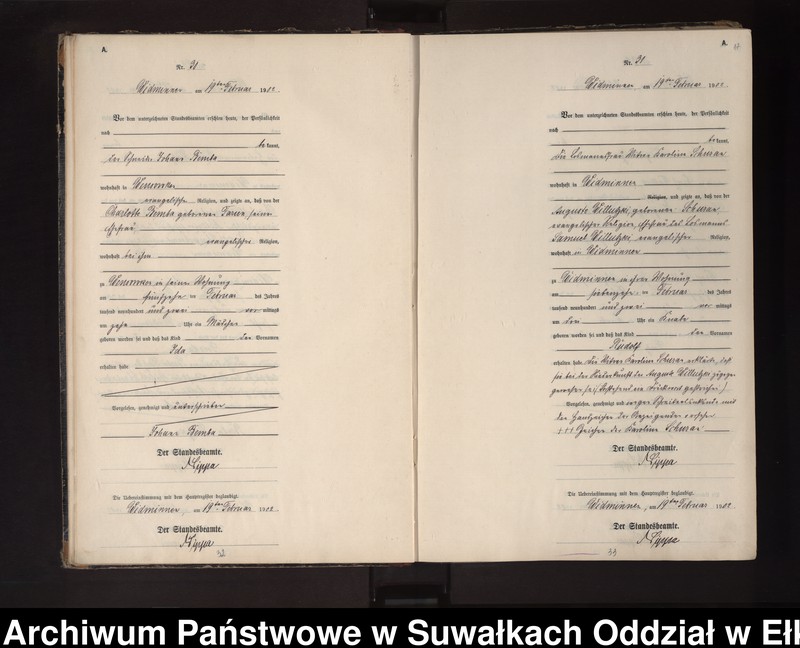 A.
Nr. 30
Widminnen am 19ten Februar 1902
Vor dem unterzeichneten Standesbeamten erschien heute, der Persönlichkeit
nach
bekannt,
der Schneider Johann Bemba
wohnhaft in
evangelische Religion, und zeigte an, daß von der
Charlotte Bemba geborenen seiner
Ehefrau
evangelischer Religion,
wohnhaft bei ihm
zu in seiner Wohnung
am fünfzehn ten Februar des Jahres
tausend neunhundert und zwei vor mittags
um zehn Uhr ein Mädchen
geboren worden sei und daß das Kind den Vornamen
Ida
erhalten habe
Vorgelesen, genehmigt und unterschrieben
Johann Bemba
Der Standesbeamte.
Lippa
Die Uebereinstimmung mit dem Hauptregister beglaubigt.
Widminnen, am 19ten Februar 1902
Der Standesbeamte.
Lippa
32
A.
Nr. 31
Widminnen am 19ten Februar 1902
Vor dem unterzeichneten Standesbeamten erschien heute, der Persönlichkeit
nach
bekannt,
die Losmannsfrau Karoline
wohnhaft in Widminnen
Religion, und zeigte an, daß von der
Auguste Willutzki geborenen
evangelischer Religion, Ehefrau des Losmanns
Samuel Willutzki evangelischer Religion,
wohnhaft in Widminnen
zu Widminnen in ihrer Wohnung
am siebenzehn ten Februar des Jahres
tausend neunhundert und zwei vor mittags
um Uhr ein Knabe
geboren worden sei und daß das Kind den Vornamen
Rudolf
erhalten habe. Die Karoline erklärte, daß
sie bei der Niederkunft der Auguste Willutzki zugegen
gewesen sei.
Vorgelesen, genehmigt und wegen Schreibensunkunde mit
den Handzeichen der Anzeigenden versehen
+++ Zeichen der Karoline
Der Standesbeamte.
Lippa
Die Uebereinstimmung mit dem Hauptregister beglaubigt.
Widminnen, am 19ten Februar 1902
Der Standesbeamte.
Lippa
33
Archiwum Państwowe w Suwałkach Oddział w Ełk